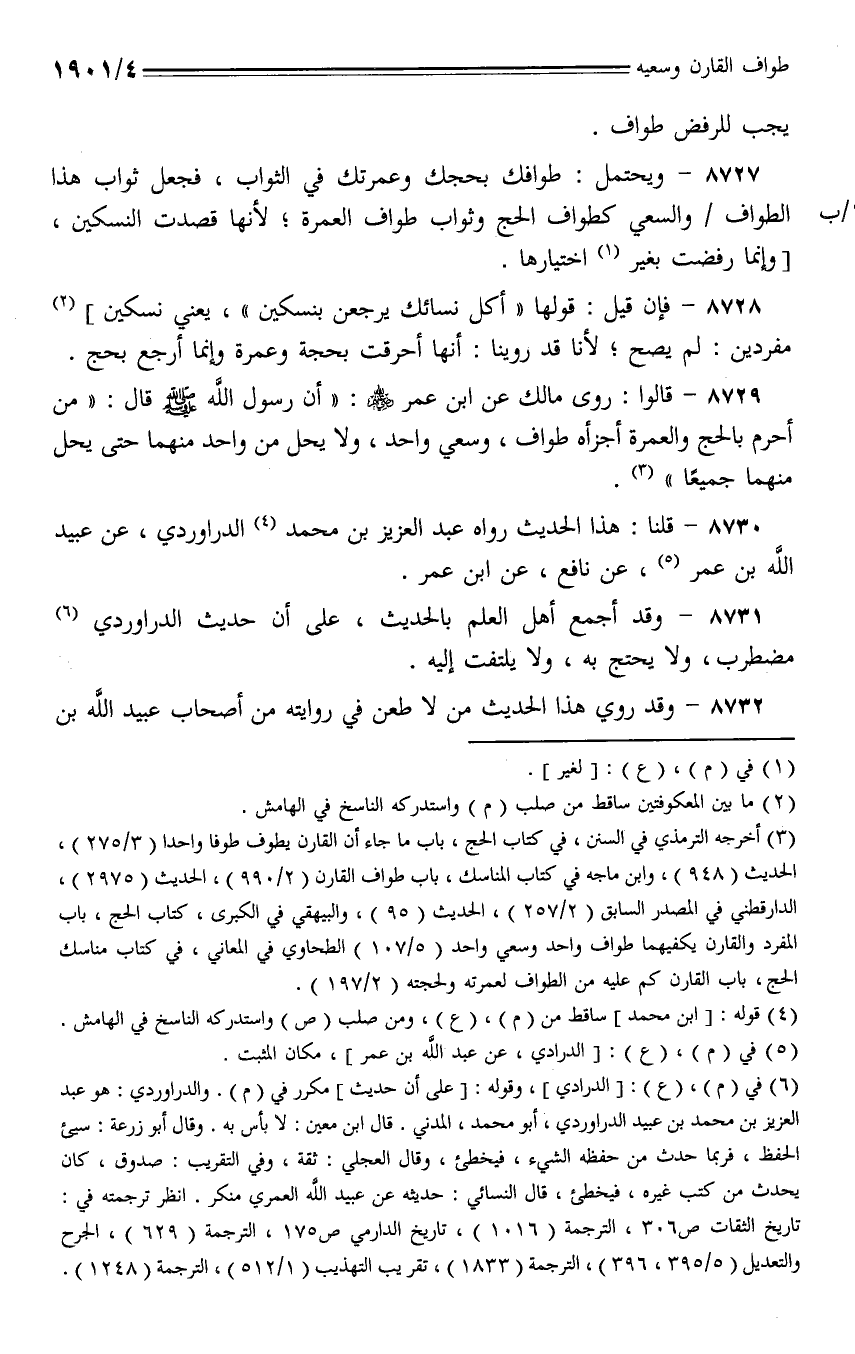 طواف القارن وسعيه ١٩٠١/٤
يجب للرفض طواف .
٨٧٢٧ - ويحتمل : طوافك بحجك وعمرتك في الثواب ، فجعل ثواب هذا
/ب الطواف / والسعي كطواف الحج وثواب طواف العمرة ؛ لأنها قصدت النسكين ،
[ وإنما رفضت بغير (١) اختيارها .
٨٧٢٨ - فإن قيل : قولها « أكل نسائك يرجعن بنسكين » ، يعني نسكين ] (٢)
مفردين : لم يصح ؛ لأنا قد روينا : أنها أحرقت بحجة وعمرة وإنما أرجع بحج .
٨٧٢٩ - قالوا : روى مالك عن ابن عمر ﵁ : « أن رسول اللَّه ﷺ قال : « من
أحرم بالحج والعمرة أجزأه طواف ، وسعي واحد ، ولا يحل من واحد منهما حتى يحل
منهما جميعًا » (٣) .
٨٧٣٠ - قلنا : هذا الحديث رواه عبد العزيز بن محمد (٤) الدراوردي ، عن عبيد
اللَّه بن عمر (٥) ، عن نافع ، عن ابن عمر .
٨٧٣١ - وقد أجمع أهل العلم بالحديث ، على أن حديث الدراوردي (٦)
مضطرب، ولا يحتج به ، ولا يلتفت إليه .
٨٧٣٢ - وقد روي هذا الحديث من لا طعن في روايته من أصحاب عبيد اللَّه بن
(١) في ( م ) ، ( ع ) : [ لغير ] .
(٢) ما بين المعكوفتين ساقط من صلب ( م ) واستدركه الناسخ في الهامش .
(٣) أخرجه الترمذي في السنن ، في كتاب الحج ، باب ما جاء أن القارن يطوف طوفا واحدا ( ٢٧٥/٣ ) ،
الحديث ( ٩٤٨ ) ، وابن ماجه في كتاب المناسك ، باب طواف القارن ( ٩٩٠/٢ ) ، الحديث ( ٢٩٧٥ ) ،
الدارقطني في المصدر السابق ( ٢٥٧/٢ ) ، الحديث ( ٩٥ ) ، والبيهقي في الكبرى ، كتاب الحج ، باب
المفرد والقارن يكفيهما طواف واحد وسعي واحد ( ١٠٧/٥ ) الطحاوي في المعاني ، في كتاب مناسك
الحج ، باب القارن كم عليه من الطواف لعمرته ولحجته ( ١٩٧/٢ ) .
(٤) قوله : [ ابن محمد ] ساقط من ( م ) ، ( ع ) ، ومن صلب ( ص ) واستدركه الناسخ في الهامش .
(٥) في ( م ) ، ( ع ) : [ الدرادي ، عن عبد اللَّه بن عمر ] ، مكان المثبت .
(٦) في ( م ) ، ( ع ) : [ الدرادي ] ، وقوله : [ على أن حديث ] مكرر في ( م ) . والدراوردي : هو عبد
العزيز بن محمد بن عبيد الدراوردي ، أبو محمد ، المدني . قال ابن معين : لا بأس به . وقال أبو زرعة : سيئ
الحفظ ، فربما حدث من حفظه الشيء ، فيخطئ ، وقال العجلي : ثقة ، وفي التقريب : صدوق ، كان
يحدث من كتب غيره ، فيخطئ ، قال النسائي : حديثه عن عبيد اللَّه العمري منكر . انظر ترجمته في :
تاريخ الثقات ص٣٠٦ ، الترجمة ( ١٠١٦ ) ، تاريخ الدارمي ص١٧٥ ، الترجمة ( ٦٢٩ ) ، الجرح
والتعديل ( ٣٩٥/٥ ، ٣٩٦ ) ، الترجمة ( ١٨٣٣ ) ، تقريب التهذيب ( ٥١٢/١ ) ، الترجمة ( ١٢٤٨ ) .